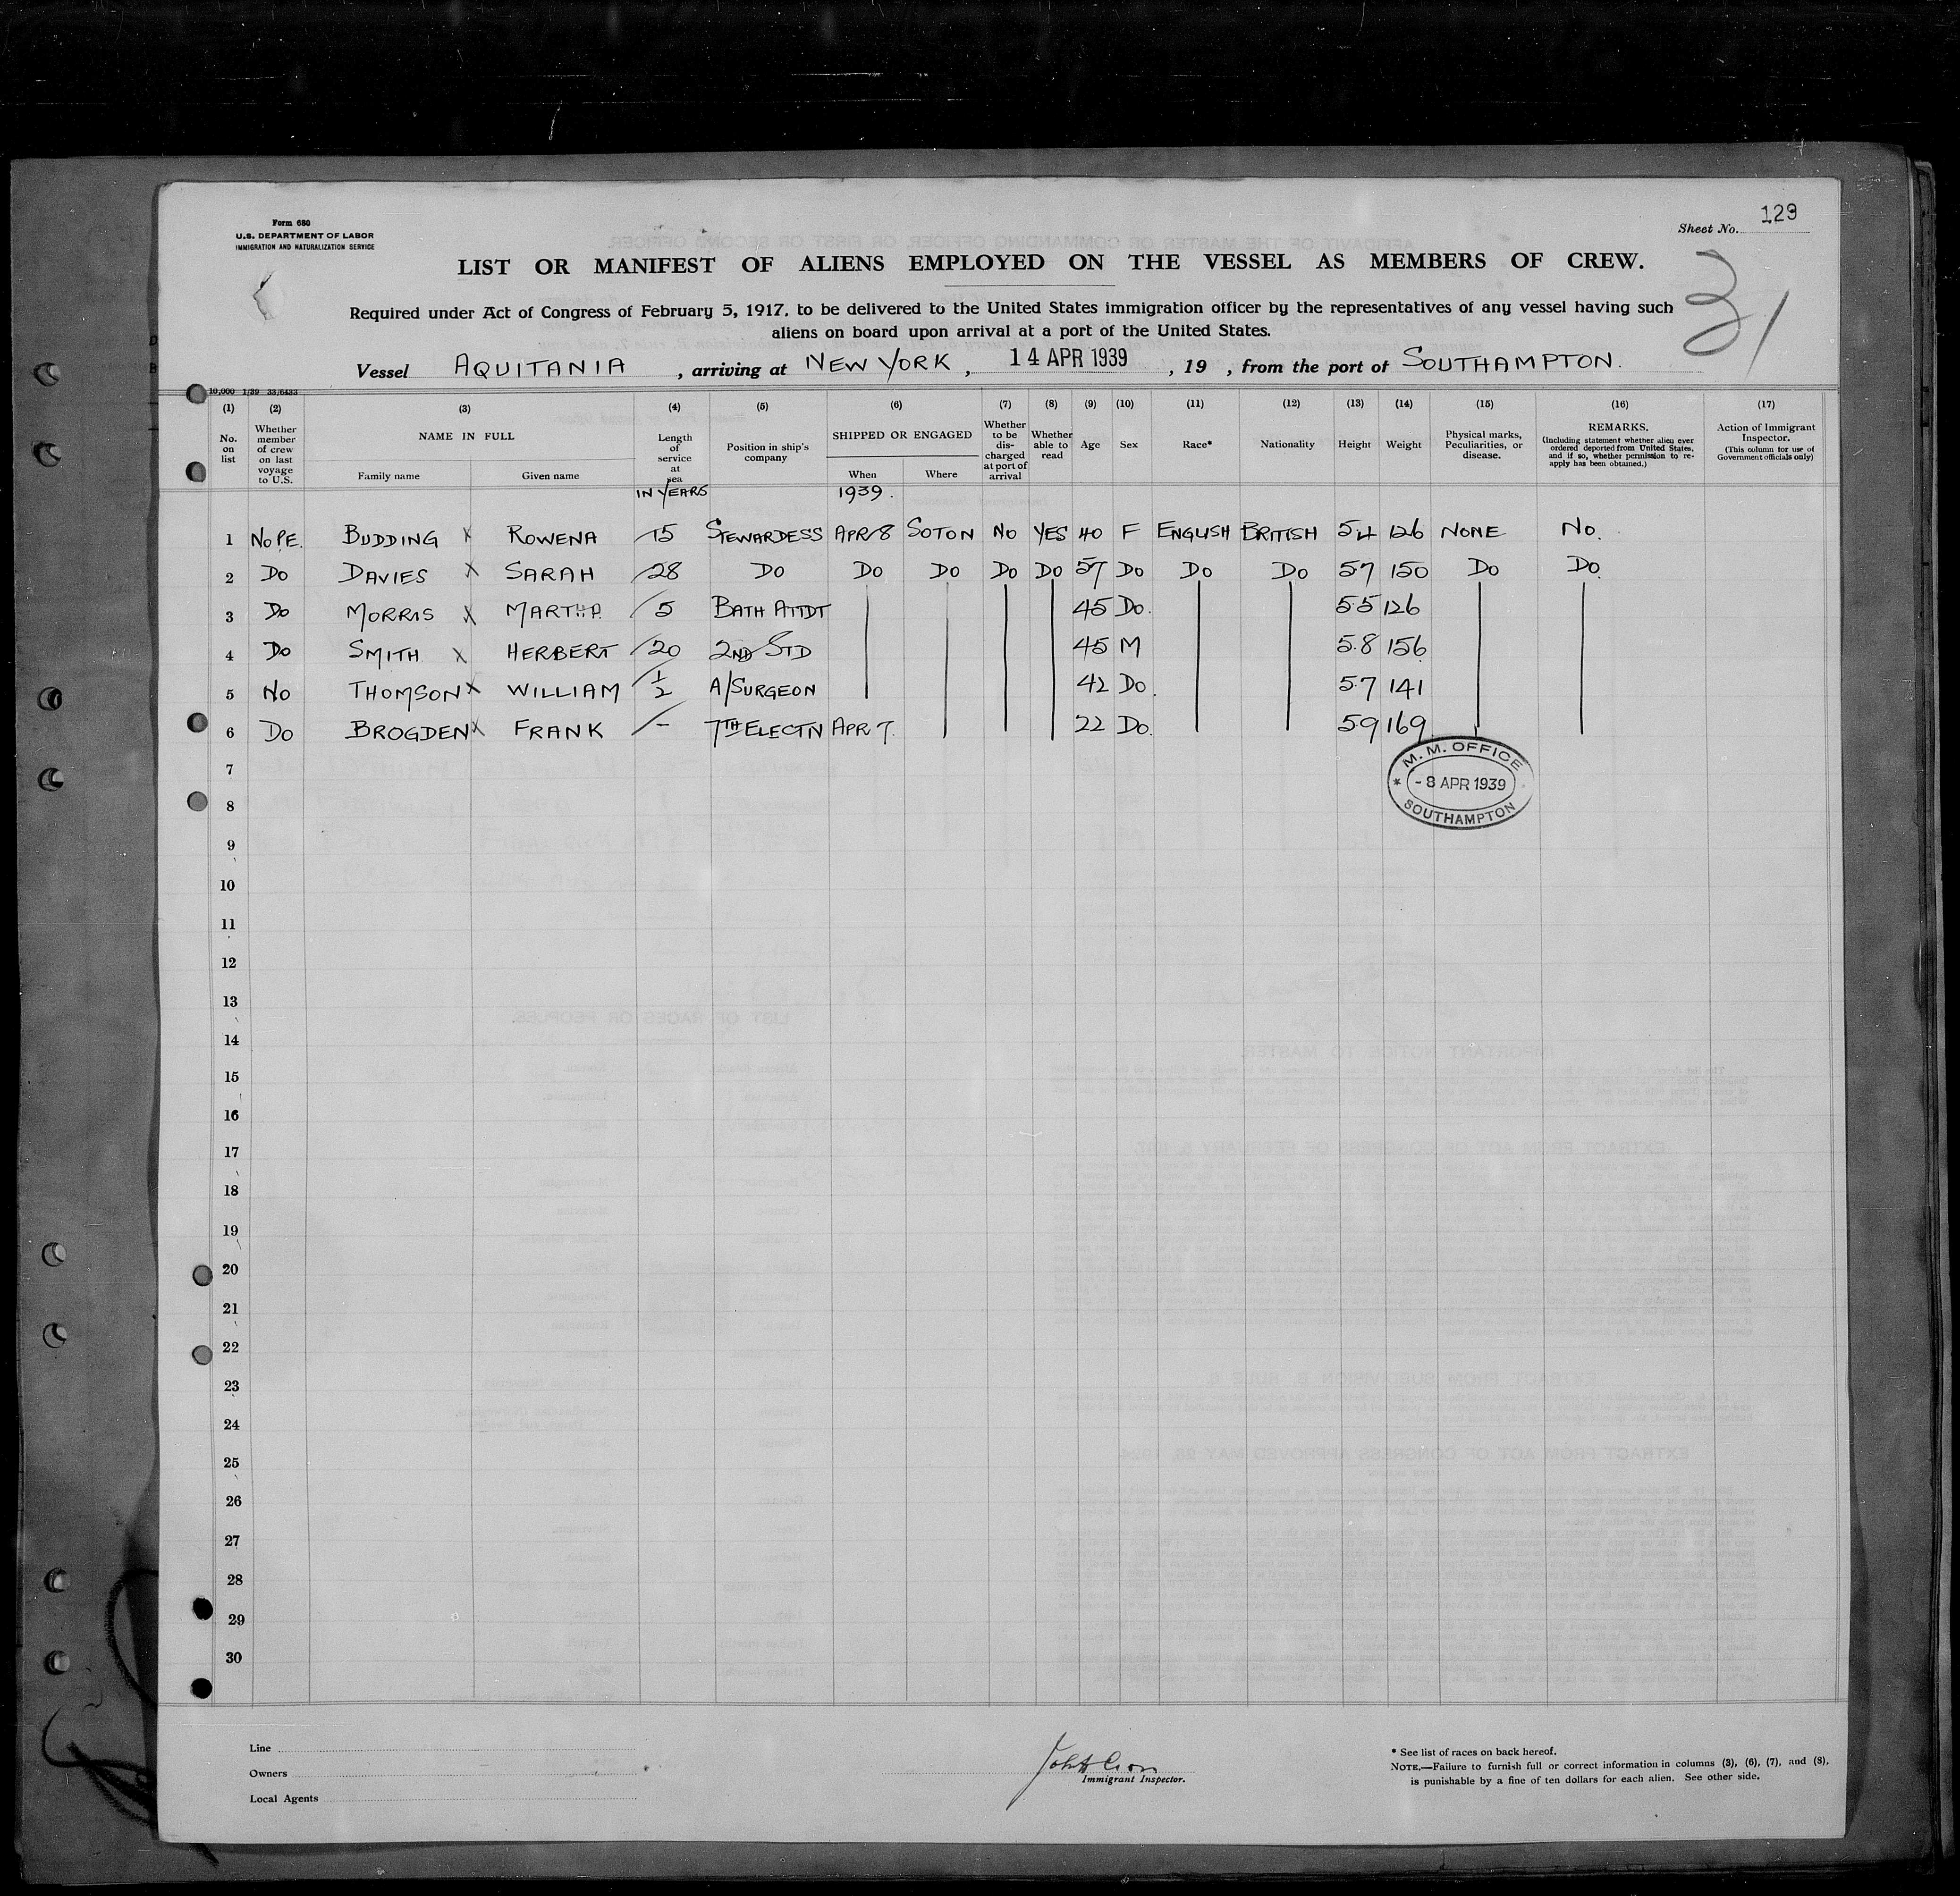 Form 680
U.S. DEPARTMENT OF LABOR
IMMIGRATION AND NATURALIZATION SERVICE
Sheet No. 129
LIST OR MANIFEST OF ALIENS EMPLOYED ON THE VESSEL AS MEMBERS OF CREW.
31
Required under Act of Congress of February 5, 1917, to be delivered to the United States immigration officer by the representatives of any vessel having such
aliens on board upon arrival at a port of the United States.
Vessel AQUITANIA, arriving at NEW YORK, 14 APR 1939, 19 , from the port of SOUTHAMPTON.
10,000 1/39 33/6433
(1) (2) (3) (4) (5) (6) (7) (8) (9) (10) (11) (12) (13) (14) (15) (16) (17)
No. on list
Whether member of crew on last voyage to U.S.
NAME IN FULL
Family name Given name
Length of service at sea
IN YEARS
Position in ship's company
SHIPPED OR ENGAGED
When Where
1939.
Whether to be discharged at port of arrival
Whether able to read
Age
Sex
Race*
Nationality
Height
Weight
Physical marks, Peculiarities, or disease.
REMARKS.
(Including statement whether alien ever ordered deported from United States, and if so, whether permission to re-apply has been obtained.)
Action of Immigrant Inspector.
(This column for use of Government officials only)
1 No P.E. BUDDING X ROWENA 15 STEWARDESS APR 8 SOTON NO YES 40 F ENGLISH BRITISH 5.4 126 NONE NO.
2 DO DAVIES X SARAH 28 DO DO DO DO DO 57 DO DO DO 5.7 150 DO DO.
3 DO MORRIS X MARTHA 5 BATH ATTDT 45 DO. 5.5 126
4 DO SMITH X HERBERT 20 2ND STD 45 M 5.8 156
5 NO THOMSON X WILLIAM 1/2 A/SURGEON 42 DO. 5.7 141
6 DO BROGDEN X FRANK - 7TH ELECTN APR 7. 22 DO. 5.9 169
7
8
9
10
11
12
13
14
15
16
17
18
19
20
21
22
23
24
25
26
27
28
29
30
M. M. OFFICE
* - 8 APR 1939
SOUTHAMPTON
Line
Owners
Local Agents
Immigrant Inspector.
* See list of races on back hereof.
NOTE.—Failure to furnish full or correct information in columns (3), (6), (7), and (8),
is punishable by a fine of ten dollars for each alien. See other side.